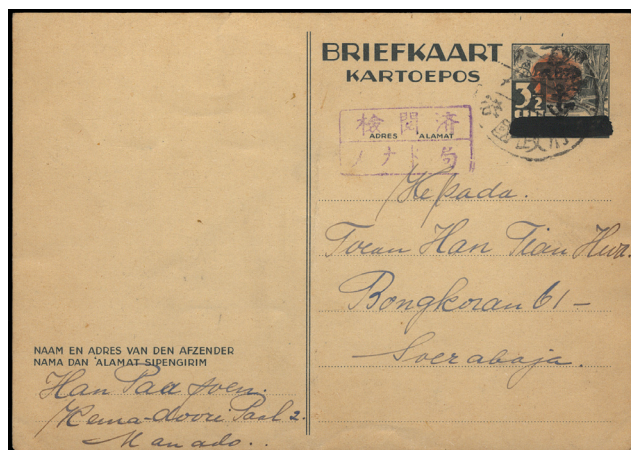 BRIEFKAART
KARTOEPOS
3½
検閲済
ADRES ALAMAT
メナド局
Kepada.
Toean Han Tian Hwa.
Bongkoran 61 —
Soerabaja.
NAAM EN ADRES VAN DEN AFZENDER
NAMA DAN ALAMAT SIPENGIRIM
Han
Kema-doori Paal 2.
Manado..